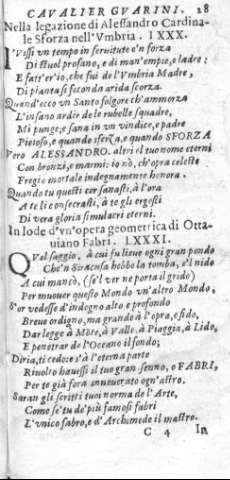 CAVALIER GVARINI. 28
Nella legazione di Alessandro Cardina-
le Sforza nell'Vmbria. LXXX.
Vissi vn tempo in seruitute o'n forza
Di stuol profano, e di man'empie, e ladre:
E fatt'er'io, che fui de l'Vmbria Madre,
Di pianta sì feconda arida scorza.
Quand'ecco vn Santo folgore ch'ammorza
L'insano ardir de le rubelle squadre,
Mi punge, e sana in vn vindice, e padre
Pietoso, e quando sferza, e quando SFORZA
Vero ALESSANDRO. altri il tuo nome eterni
Con bronzi, e marmi: io nò, ch'opra celeste
Fregio mortale indegnamente honora.
Quando tu questi cor sanasti, à l'ora
A te li consecrasti, à te gli ergesti
Di vera gloria simulacri eterni.
In lode d'vn'opera geometrica di Otta-
uiano Fabri. LXXXI.
Quel saggio, à cui fu lieue ogni gran pondo
Che'n Siracusa hebbe la tomba, e'l nido
A cui mancò, (se'l ver ne porta il grido)
Per muouer questo Mondo vn'altro Mondo,
S'or vedesse d'indegno alto e profondo
Breue ordigno, ma grande à l'opra, e fido,
Dar legge à Mõte, à Valle, à Piaggia, à Lido,
E penetrar de l'Oceano il fondo;
Diria, ti cedo: e s'à l'eterna parte
Riuolto hauessi il tuo gran senno, o FABRI,
Per te già fora annouerato ogn'astro.
Saran gli scritti tuoi norma de l'Arte,
Come se'tu do'più famosi fabri
L'vnico fabro, e d'Archimede il mastro.
C 4 In